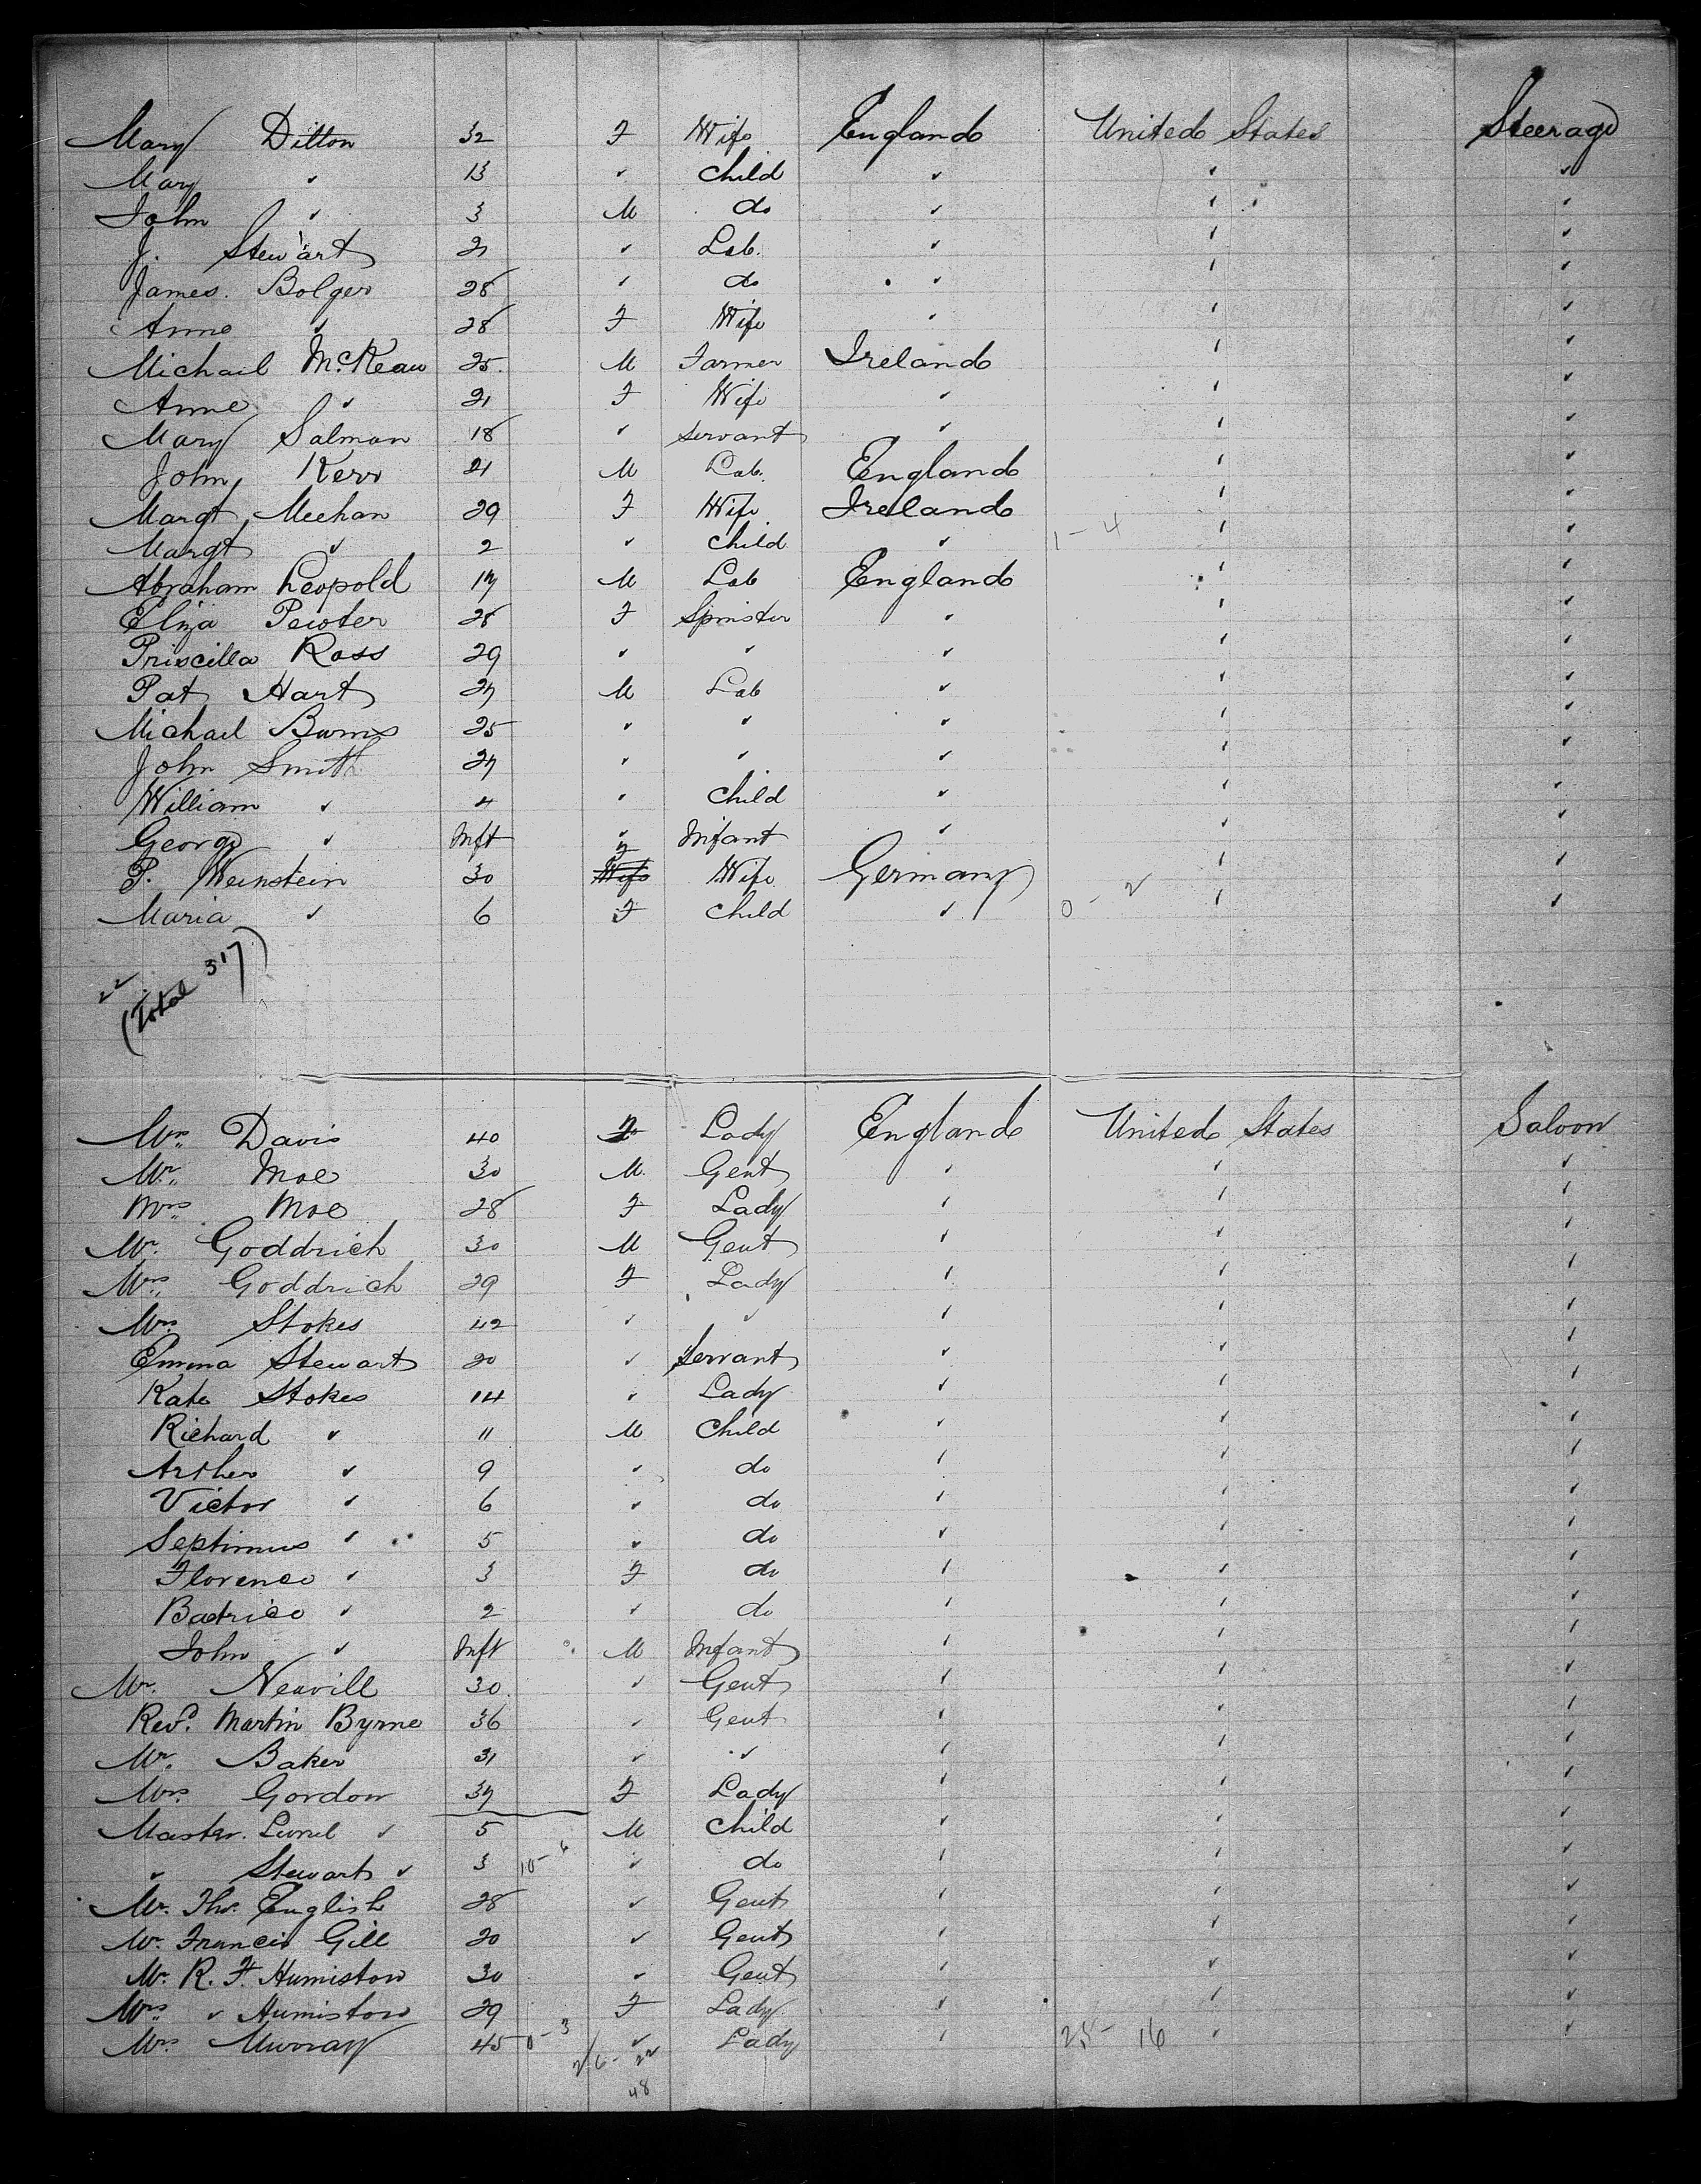 Mary Ditton 32 F Wife England United States Steerage
Mary " 13 " Child " " "
John " 3 M do " " "
J. Stewart 21 " Lab. " " "
James Bolger 28 " do " " "
Anne " 28 F Wife " " "
Michail McKeaw 25 M Farmer Ireland " "
Anne " 21 F Wife " " "
Mary Salmon 18 " Servant " " "
John Kerr 21 M Lab. England " "
Margt Meehan 29 F Wife Ireland " "
Margt " 2 " Child " 1-4 " "
Abraham Leopold 17 M Lab England " "
Eliza Pewter 28 F Spinster " " "
Priscilla Ross 29 " " " " "
Pat Hart 27 M Lab " " "
Michael Burns 25 " " " " "
John Smith 27 " " " " "
William " 4 " Child " " "
George " Inft " Infant " " "
P. Weinstein 30 F Wife Germany " "
Maria " 6 F Child " 0-2 " "
22
(Total 317)
Mrs. Davis 40 F Lady England United States Saloon
Mr. Moe 30 M. Gent " " "
Mrs. Moe 28 F Lady " " "
Mr. Goddrich 30 M Gent " " "
Mrs. Goddrich 29 F Lady " " "
Mrs. Stokes 42 " " " " "
Emma Stewart 20 " Servant " " "
Kate Stokes 14 " Lady " " "
Richard " 11 M Child " " "
Arther " 9 " do " " "
Victor " 6 " do " " "
Septimus " 5 " do " " "
Florence " 3 F do " " "
Baetrice " 2 " do " " "
John " Inft M Infant " " "
Mr. Neavill 30 " Gent " " "
Revd. Martin Byrne 36 " Gent " " "
Mr. Baker 31 " " " " "
Mrs. Gordon 37 F Lady " " "
Master. Lionel " 5 M Child " " "
" Stewart " 3 10-6 " do " " "
Mr. Thos. English 28 " Gent " " "
Mr. Francis Gill 20 " Gent " " "
Mr. R. F. Humiston 30 " Gent " " "
Mrs. " Humiston 29 F Lady " " "
Mrs. Murray 45 0-3 " Lady " 25-16 " "
26-22
48